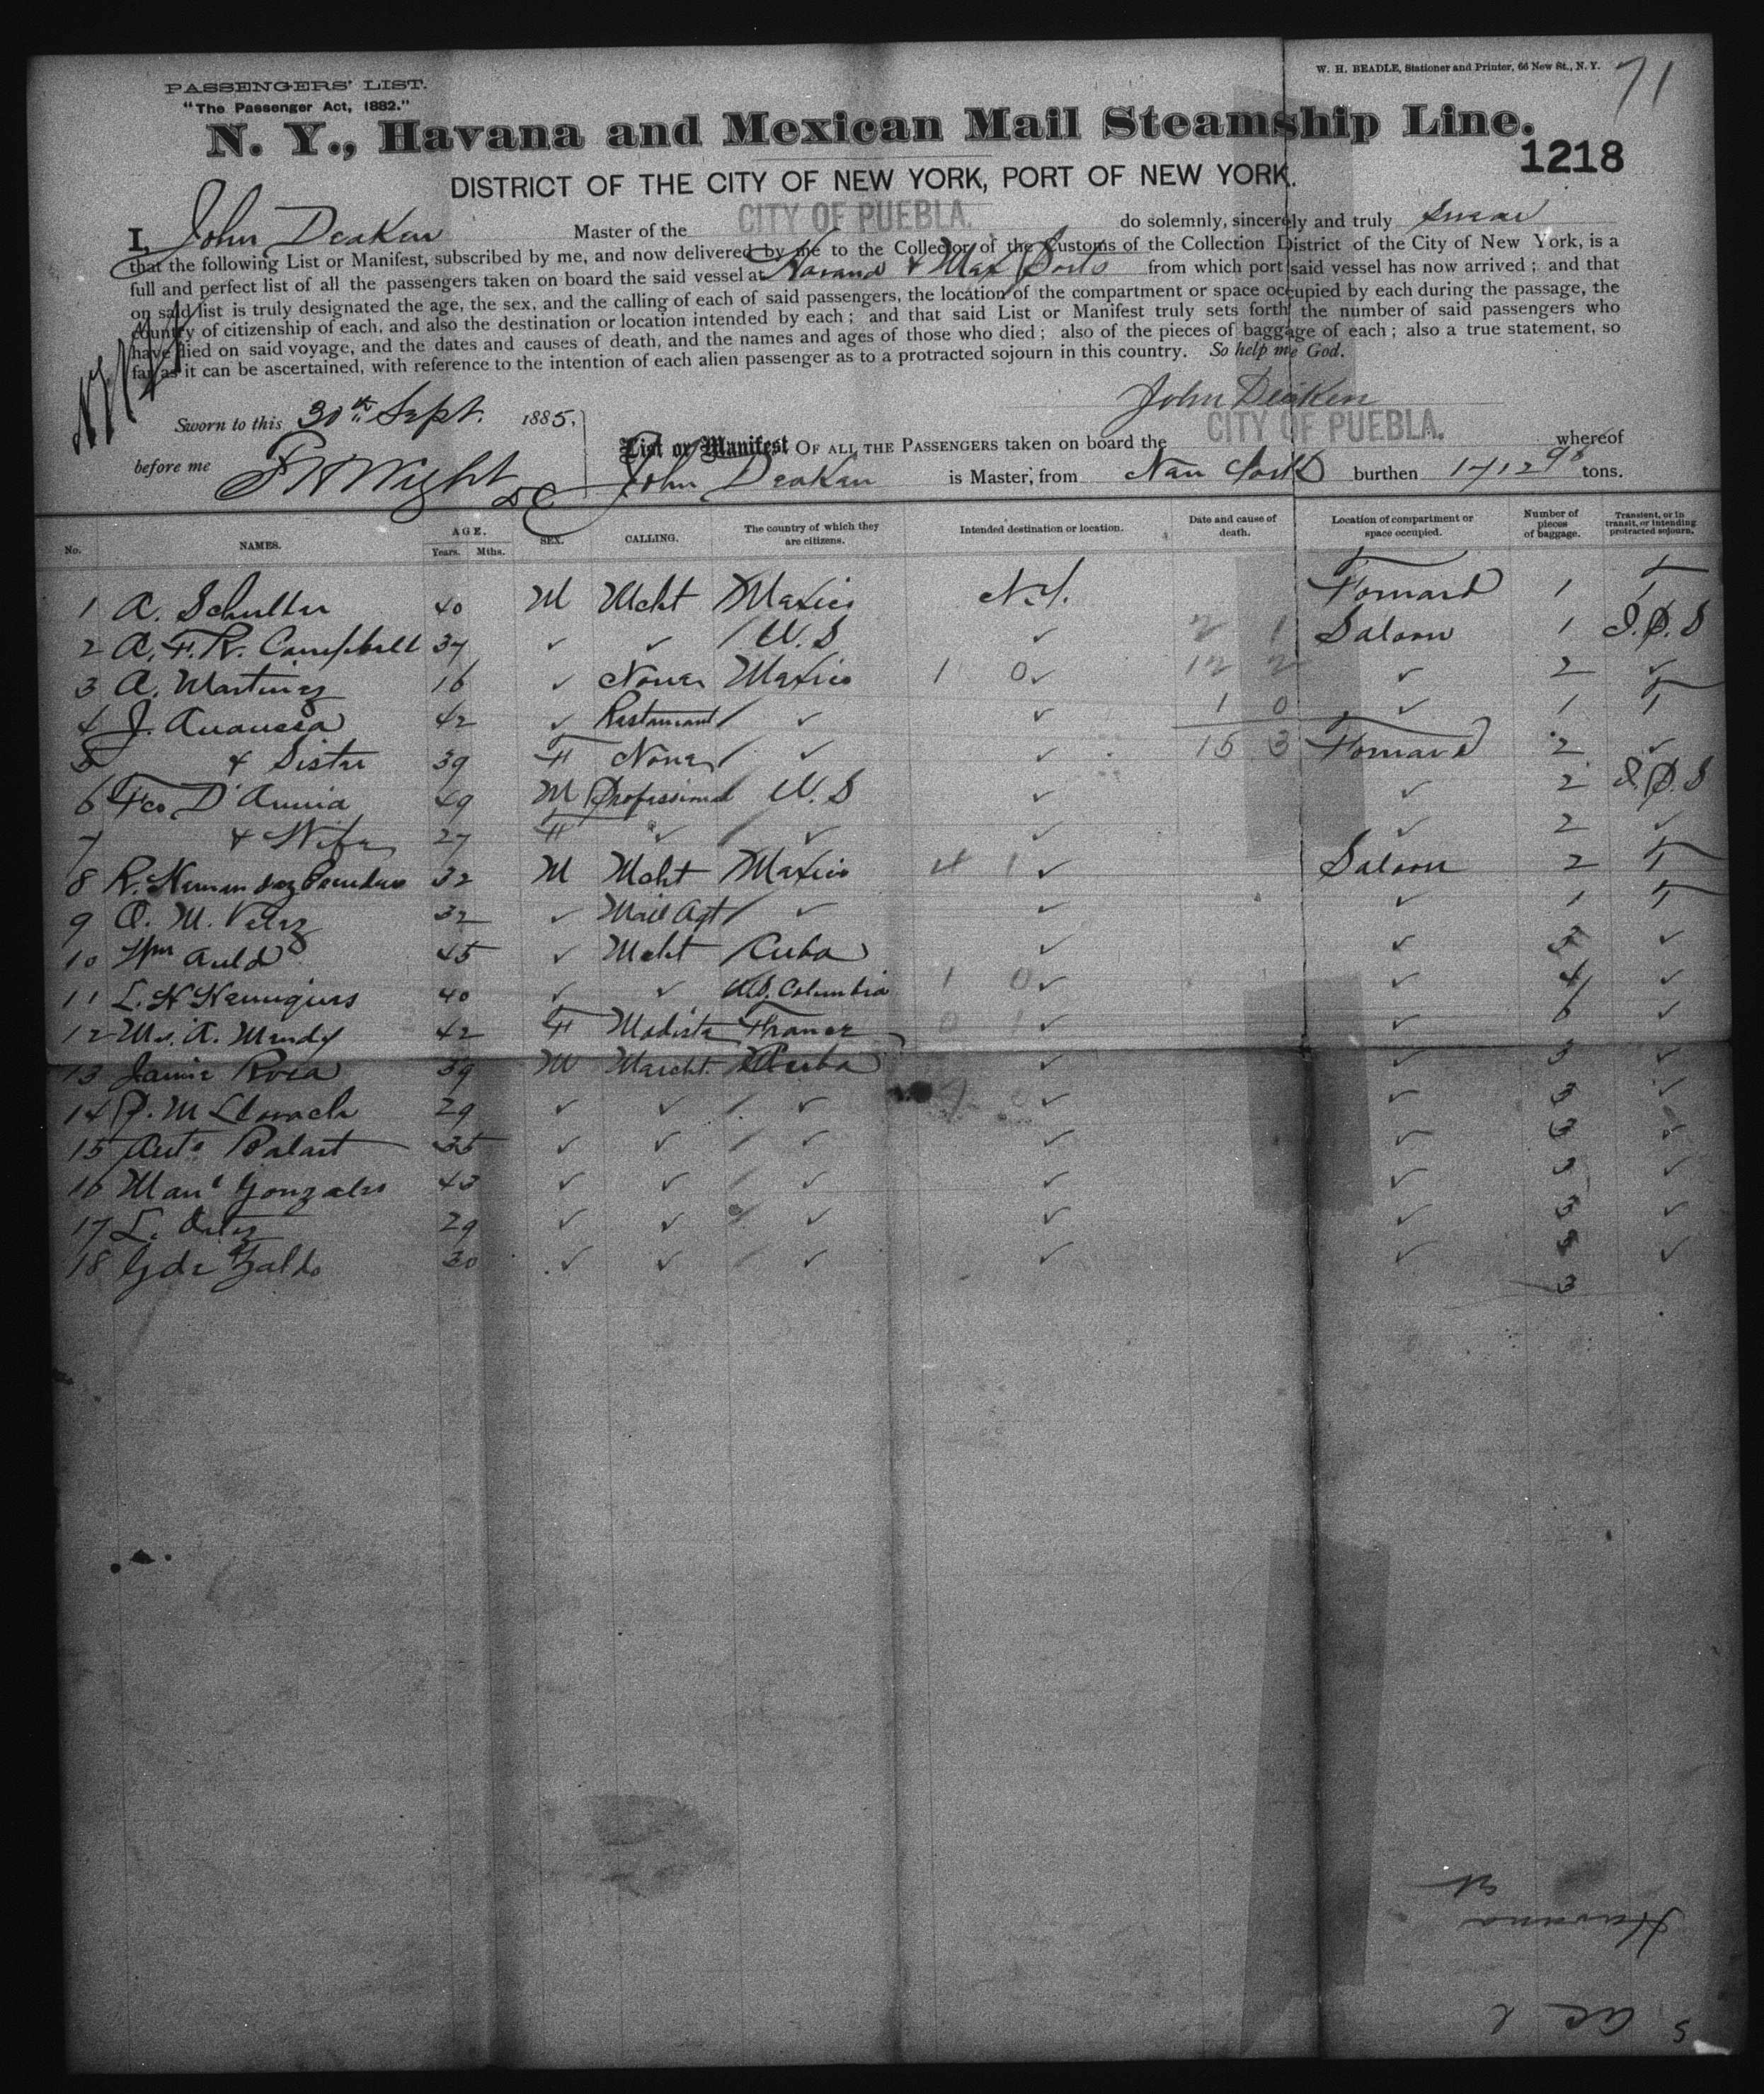 W. H. BEADLE, Stationer and Printer, 66 New St., N. Y.
71
PASSENGERS' LIST.
"The Passenger Act, 1882."
N. Y., Havana and Mexican Mail Steamship Line.
1218
DISTRICT OF THE CITY OF NEW YORK, PORT OF NEW YORK.
I, John Deaken Master of the CITY OF PUEBLA. do solemnly, sincerely and truly swear
that the following List or Manifest, subscribed by me, and now delivered by me to the Collector of the Customs of the Collection District of the City of New York, is a
full and perfect list of all the passengers taken on board the said vessel at Havana & Mex Ports from which port said vessel has now arrived; and that
on said list is truly designated the age, the sex, and the calling of each of said passengers, the location of the compartment or space occupied by each during the passage, the
country of citizenship of each, and also the destination or location intended by each; and that said List or Manifest truly sets forth the number of said passengers who
have died on said voyage, and the dates and causes of death, and the names and ages of those who died; also of the pieces of baggage of each; also a true statement, so
far as it can be ascertained, with reference to the intention of each alien passenger as to a protracted sojourn in this country. So help me God.
John Deaken
Sworn to this 30th Sept. 1885,
List or Manifest OF ALL THE PASSENGERS taken on board the CITY OF PUEBLA. whereof
before me Wight DC
John Deaken is Master, from New York burthen 1712 98 tons.
No. NAMES. AGE. Years. Mths. SEX. CALLING. The country of which they are citizens. Intended destination or location. Date and cause of death. Location of compartment or space occupied. Number of pieces of baggage. Transient, or in transit, or intending protracted sojourn.
1 A. Schuller 40 M Mcht Mexico N.Y. Forward 1 T
2 A. F. R. Campbell 37 ✓ ✓ U.S ✓ 2 1 Saloon 1 I.P.S
3 A. Martinez 16 ✓ None Mexico 1 0 ✓ 12 2 ✓ 2 ✓
4 J. 42 ✓ Restaurant ✓ ✓ 1 0 ✓ 1 T
5 & Sister 39 F None ✓ ✓ 15 3 Forward 2 ✓
6 Fco D' 49 M Professional U.S ✓ ✓ 2 I.P.S
7 & Wife 27 F ✓ ✓ ✓ ✓ 2 ✓
8 R. 32 M Mcht Mexico 4 1 ✓ Saloon 2 T
9 O. M. Velez 32 ✓ Mail Agt ✓ ✓ ✓ 1 T
10 Wm Auld 45 ✓ Mcht Cuba ✓ ✓ 3 ✓
11 L. H 40 ✓ ✓ U.S. Columbia 1 0 ✓ ✓ 4 ✓
12 Ms. A. Mendy 42 F Modiste France 0 1 ✓ ✓ 6 ✓
13 Jaime Roca 39 M Marcht. Cuba ✓ ✓ 3 ✓
14 P. M Llovach 29 ✓ ✓ ✓ 7 0 ✓ ✓ 3 ✓
15 Anto Palart 35 ✓ ✓ ✓ ✓ ✓ 3 ✓
16 Manl Gonzales 43 ✓ ✓ ✓ ✓ ✓ 3 ✓
17 L. Ortiz 29 ✓ ✓ ✓ ✓ ✓ 3 ✓
18 G de Zaldo 30 ✓ ✓ ✓ ✓ ✓ 3 ✓
3
Havana